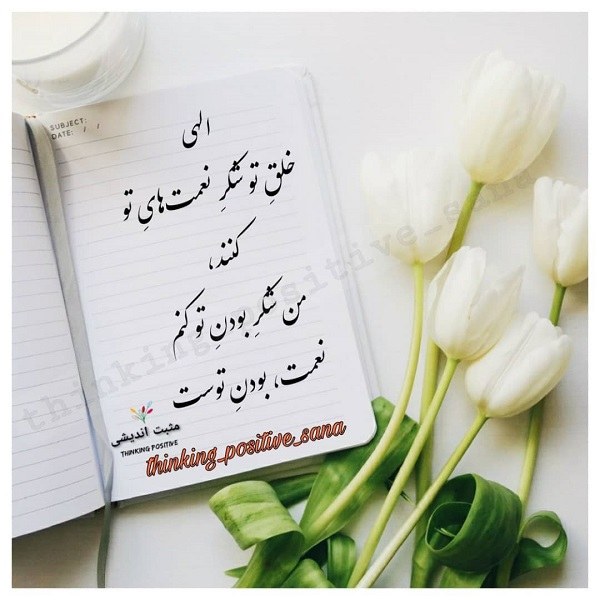 SUBJECT:
DATE: / /
الهی
خلقِ تو شکرِ نعمت‌هایِ تو
کنند،
من شکرِ بودنِ تو کنم
نعمت، بودنِ توست
مثبت اندیشی
THINKING POSITIVE
thinking_positive_sana
thinking_positive_sana